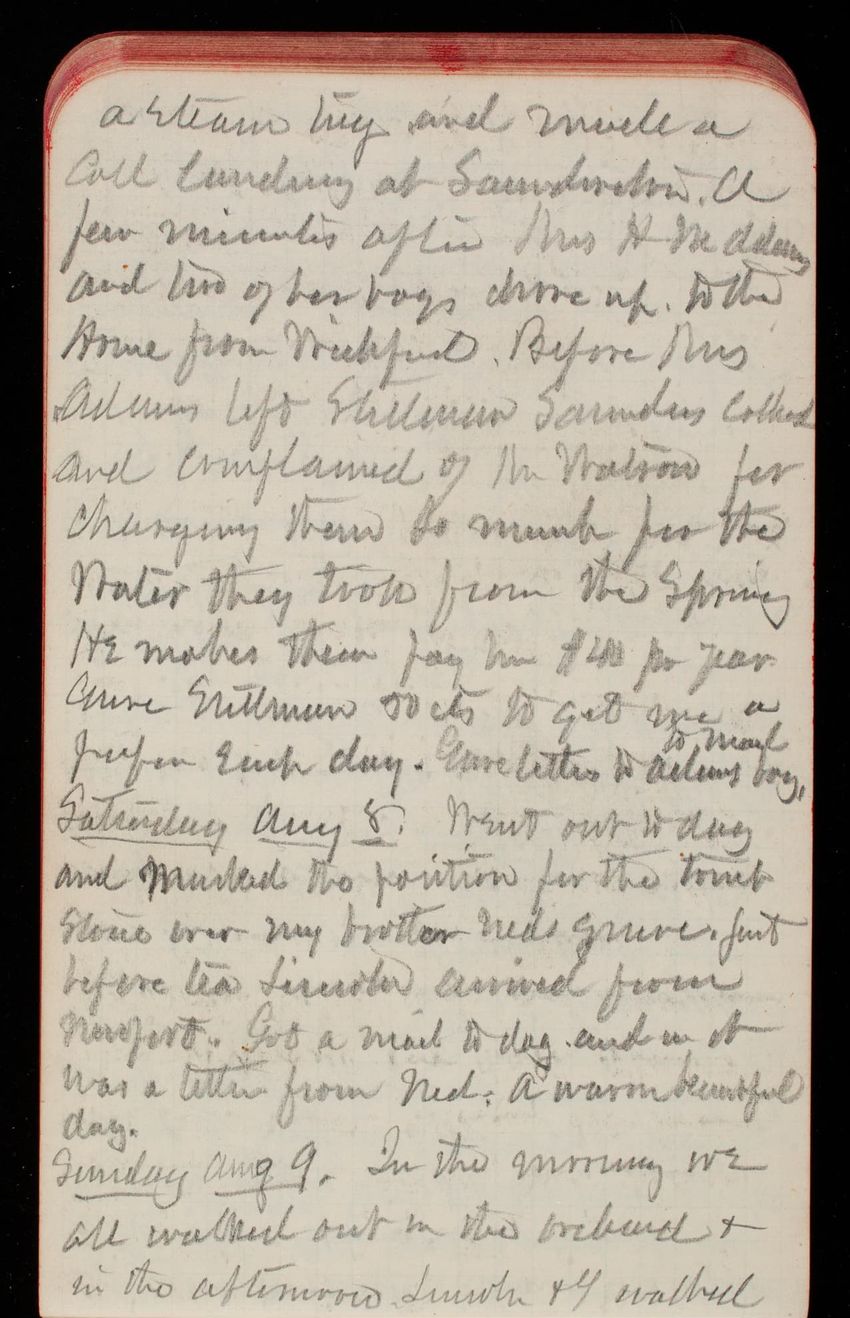 a steam tug and made a
call landing at Saunderstown. A
few minutes after Mrs H M Adams
and two of her boys drove up to the
Home from Wickford. Before Mrs
Adams left Stillman Saunders called
and complained of Mr Watson for
charging them so much for the
Water they took from the Spring
He makes them pay him $40 per year
Gave Stillman 50 cts to get me a
paper each day. Gave letter to Adams boy,
to mail
Saturday Aug 8. Went out to day
and marked the position for the tomb
stone over my brother Neds grave. Just
before tea Lincoln arrived from
Newport. Got a mail to day and in it
was a letter from Ned. A warm beautiful
day.
Sunday Aug 9. In the morning we
all walked out in the orchard +
in the afternoon Lincoln + I walked